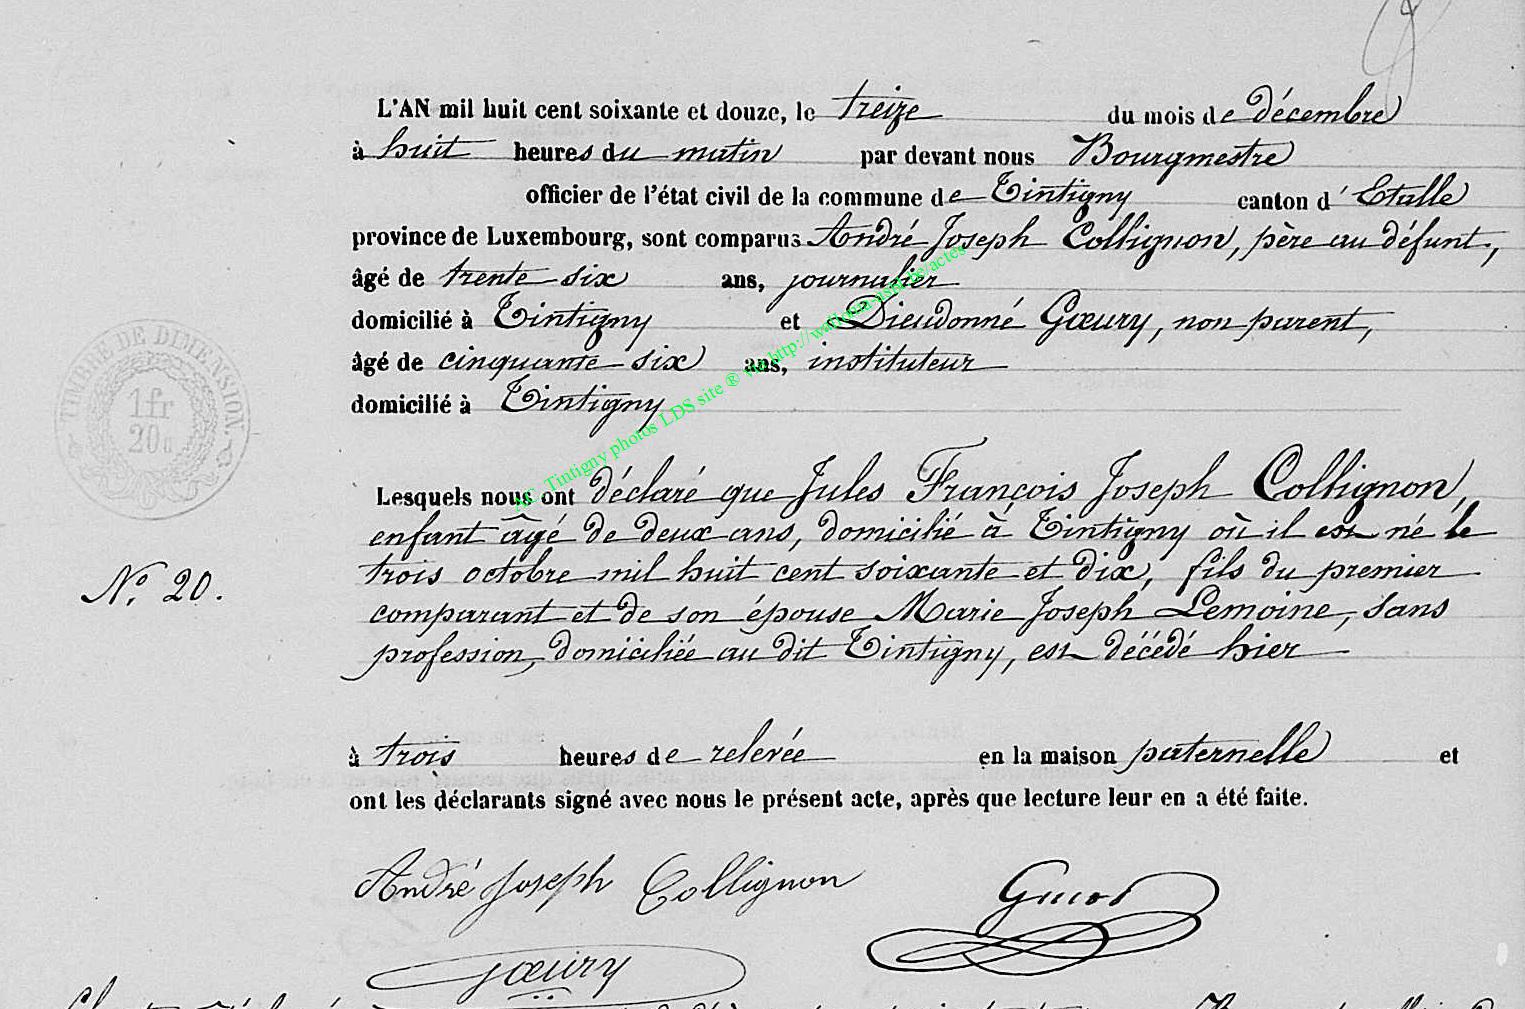 L'AN mil huit cent soixante et douze, le treize du mois de décembre
à huit heures du matin par devant nous Bourgmestre
officier de l'état civil de la commune de Tintigny canton d'Etalle
province de Luxembourg, sont comparus André Joseph Collignon, père au défunt,
âgé de trente six ans, journalier
domicilié à Tintigny et Dieudonné Gœury, non parent,
âgé de cinquante six ans, instituteur
domicilié à Tintigny
A.C. Tintigny photos LDS site ® via http://wallonia-asbl.be/actes
TIMBRE DE DIMENSION.
1fr
20c
Lesquels nous ont déclaré que Jules François Joseph Collignon,
enfant âgé de deux ans, domicilié à Tintigny où il est né le
trois octobre mil huit cent soixante et dix, fils du premier
N.° 20.
comparant et de son épouse Marie Joseph Lemoine, sans
profession, domiciliée au dit Tintigny, est décédé hier
à trois heures de relevée en la maison paternelle et
ont les déclarants signé avec nous le présent acte, après que lecture leur en a été faite.
André Joseph Collignon
Gœury